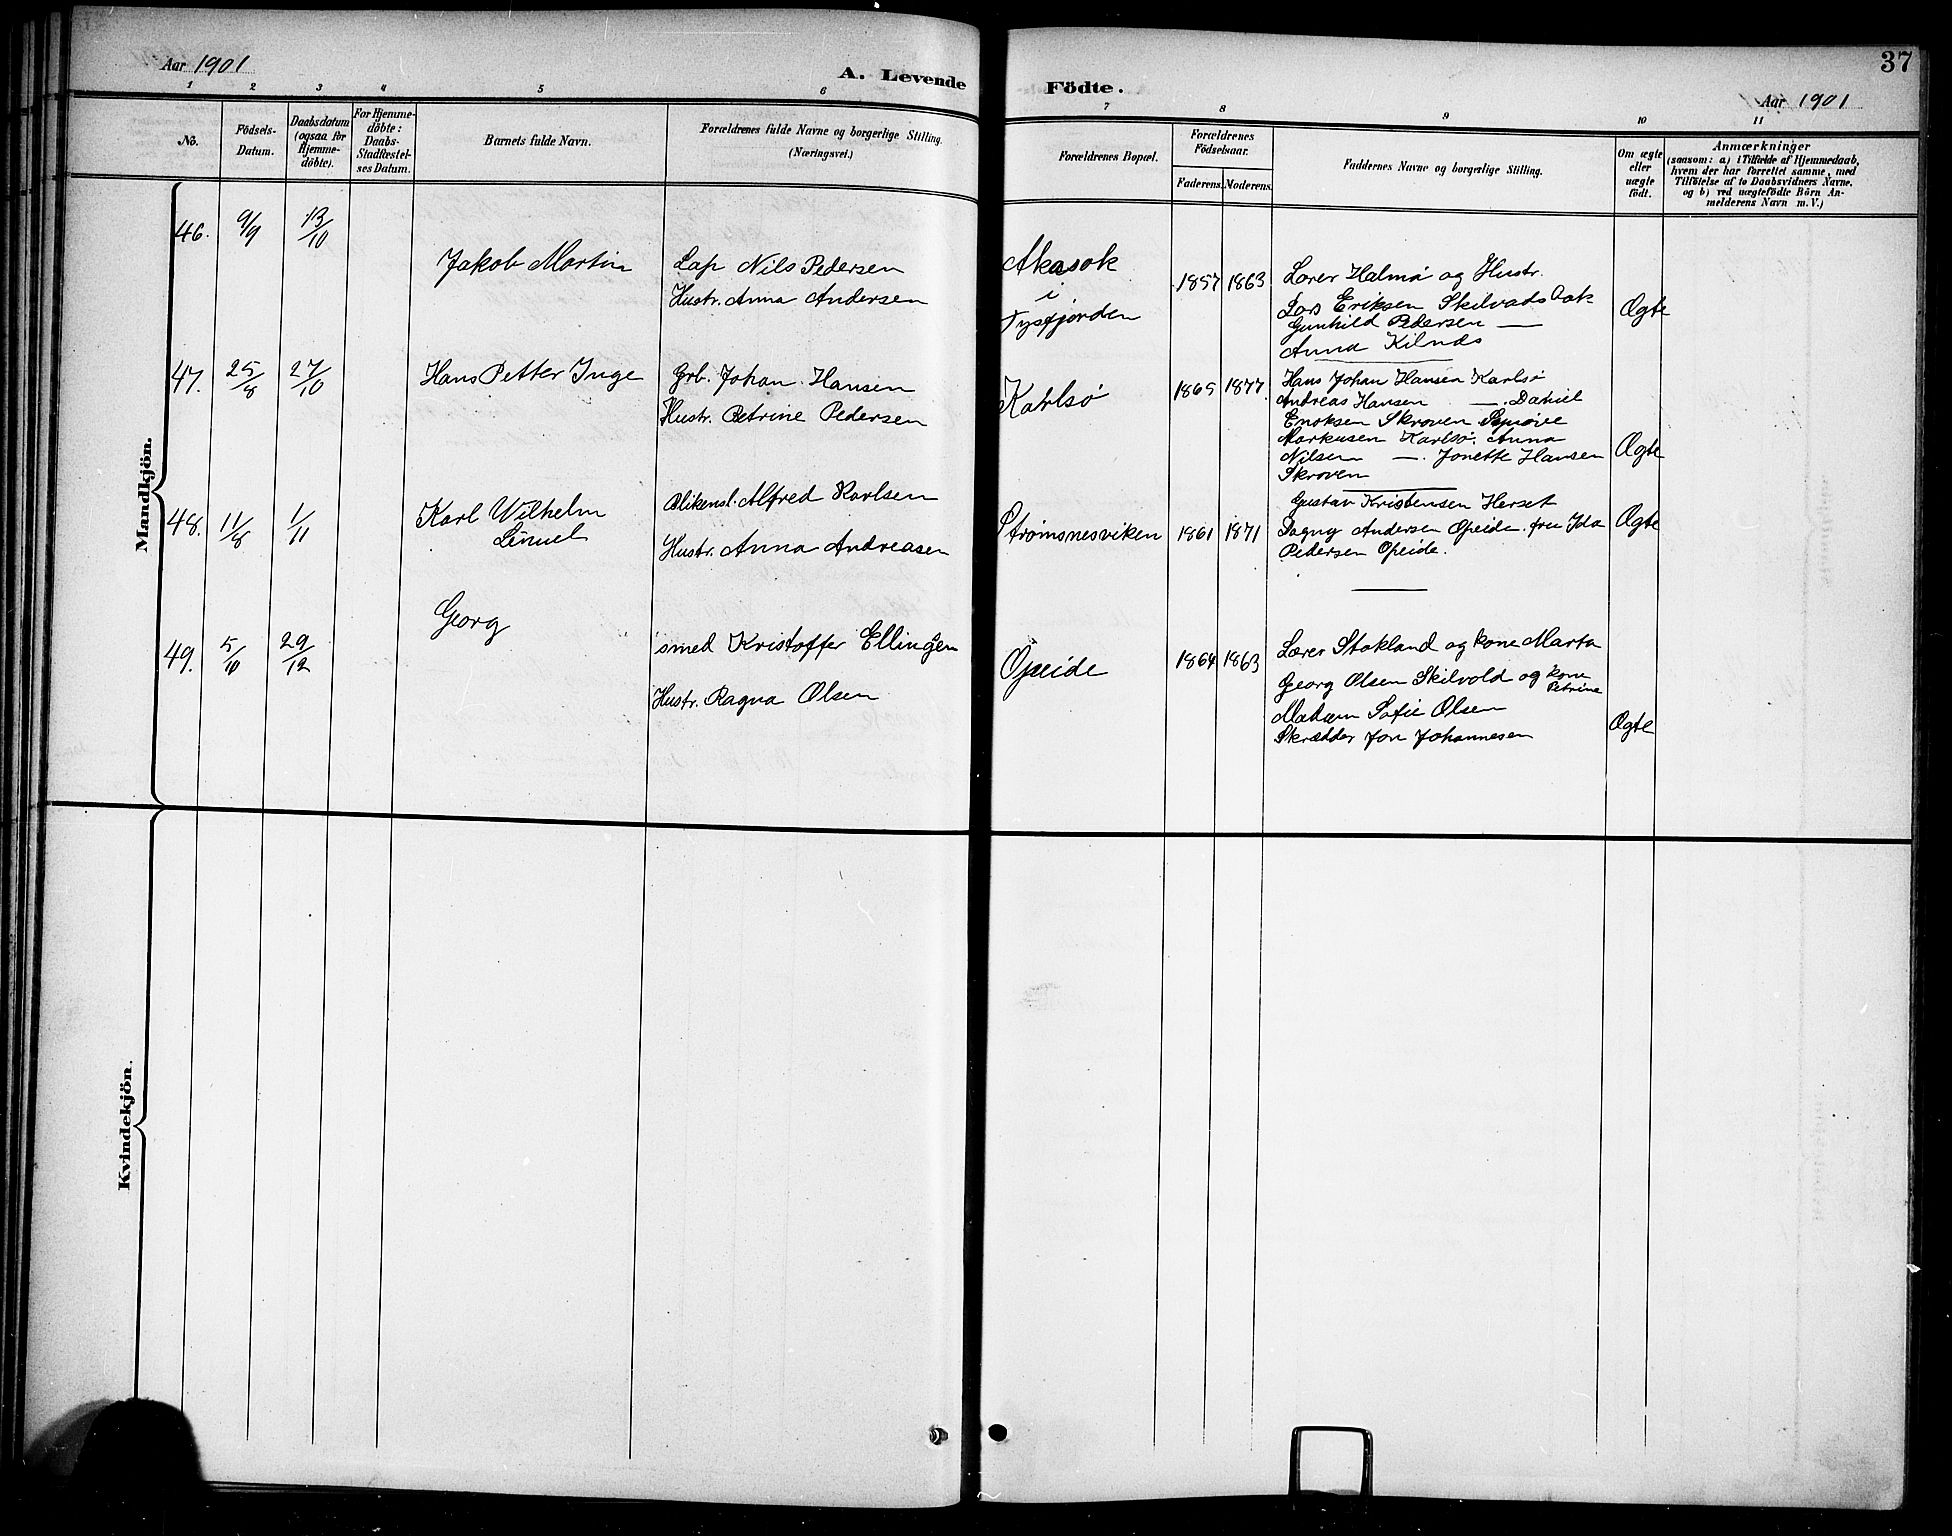 Aar 1901
A. Levende
Födte.
37
Aar 1901
1 2 3 4 5 6 7 8 9 10 11
No.
Födsels-
Datum.
Daabsdatum
(ogsaa for
Hjemme-
döbte).
For Hjemme-
döbte:
Daabs-
Stadfæstel-
ses Datum.
Barnets fulde Navn.
Forældrenes fulde Navne og borgerlige Stilling.
(Næringsvei.)
Forældrenes Bopæl.
Forældrenes
Födselsaar.
Faderens.
Moderens.
Faddernes Navne og borgerlige Stilling.
Om ægte
eller
uægte
födt.
Anmærkninger
(saasom: a) i Tilfælde af Hjemmedaab,
hvem der har forrettet samme, med
Tilföielse af to Daabsvidners Navne,
og b) ved uægtefödte Börn An-
melderens Navn m. V.)
Mandkjön.
46. 9/9 13/10
Jakob Martin
Lap Nils Pedersen
Hustr. Anna Andersen
Akasok
i
Tysfjorden
1857 1863
Lærer Halmø og Hustr.
Lars Eriksen Skilvads
Gunhild Pedersen —
Anna
Ægte
47. 25/8 27/10
Hans Petter Inge
Grb. Johan Hansen
Hustr. Petrine Pedersen
Karlsø
1865 1877
Hans Johan Hansen Karlsø
Andreas Hansen —. Daniel
Enoksen Skroven
Markusen Karlsø. Anna
Nilsen —. Jonette Hansen
Skroven
Ægte
48. 11/8 1/11
Karl Wilhelm
Blikensl. Alfred Karlsen
Hustr. Anna Andreasen
Strømsnesviken
1861 1871
Gustav Kristensen Herset
Dagny Andersen Opeide. fru Ida
Pedersen Opeide.
Ægte
49. 5/10 29/12
Georg
smed Kristoffer Ellingsen
Hustr. Ragna Olsen
Opeide
1864 1863
Lærer Stokland og kone Marta
Georg Olsen Skilvold og kone
Petrine
Madam Sofie Olsen
Skrædder Jon Johannesen
Ægte
Kvindekjön.